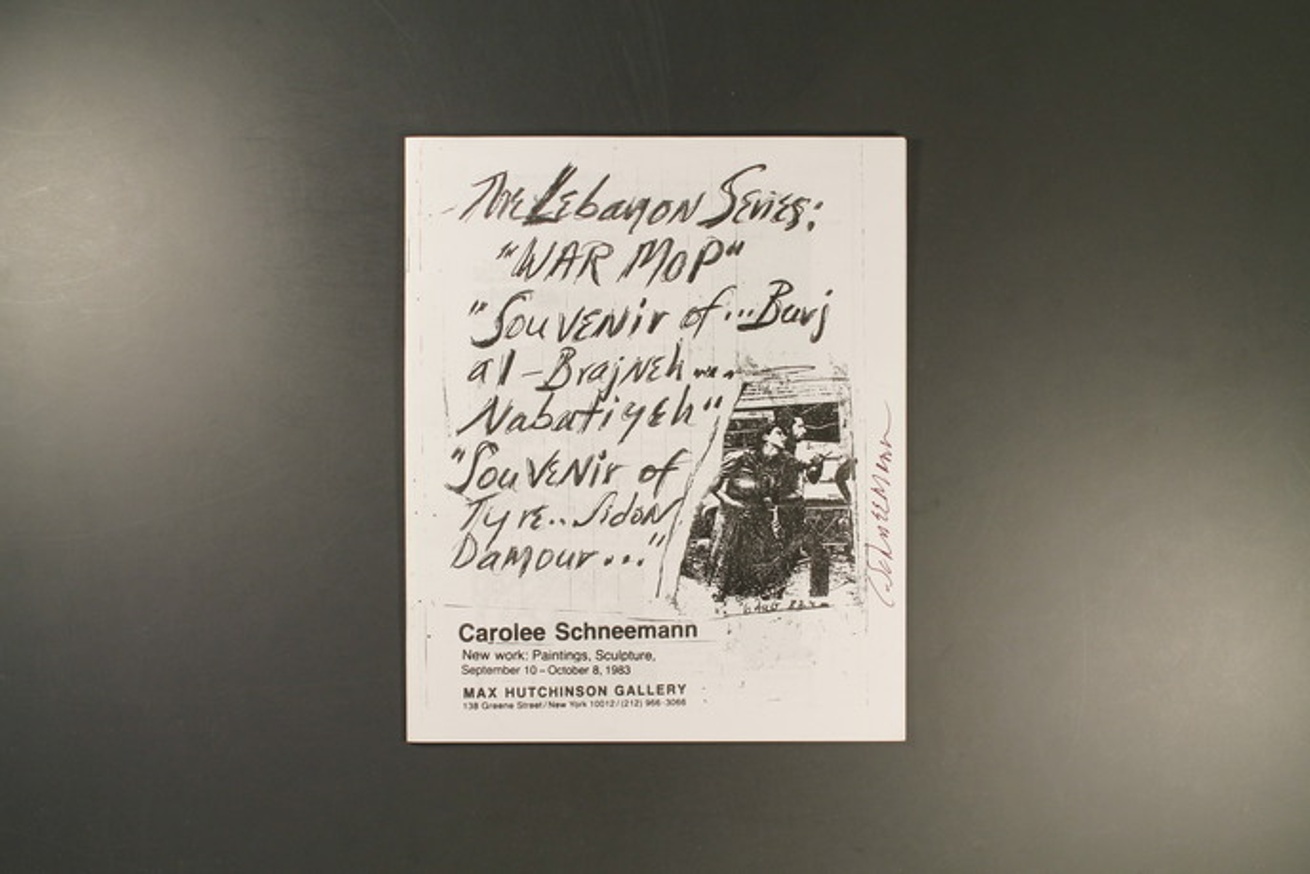 The Lebanon Series:
"WAR MOP"
"Souvenir of...Burj
al-Brajneh...
Nabatiyeh"
"Souvenir of
Tyre..Sidon
Damour..."
Carolee Schneemann
New work: Paintings, Sculpture,
September 10 – October 8, 1983
MAX HUTCHINSON GALLERY
138 Greene Street/New York 10012/(212) 966-3066
CSchneemann